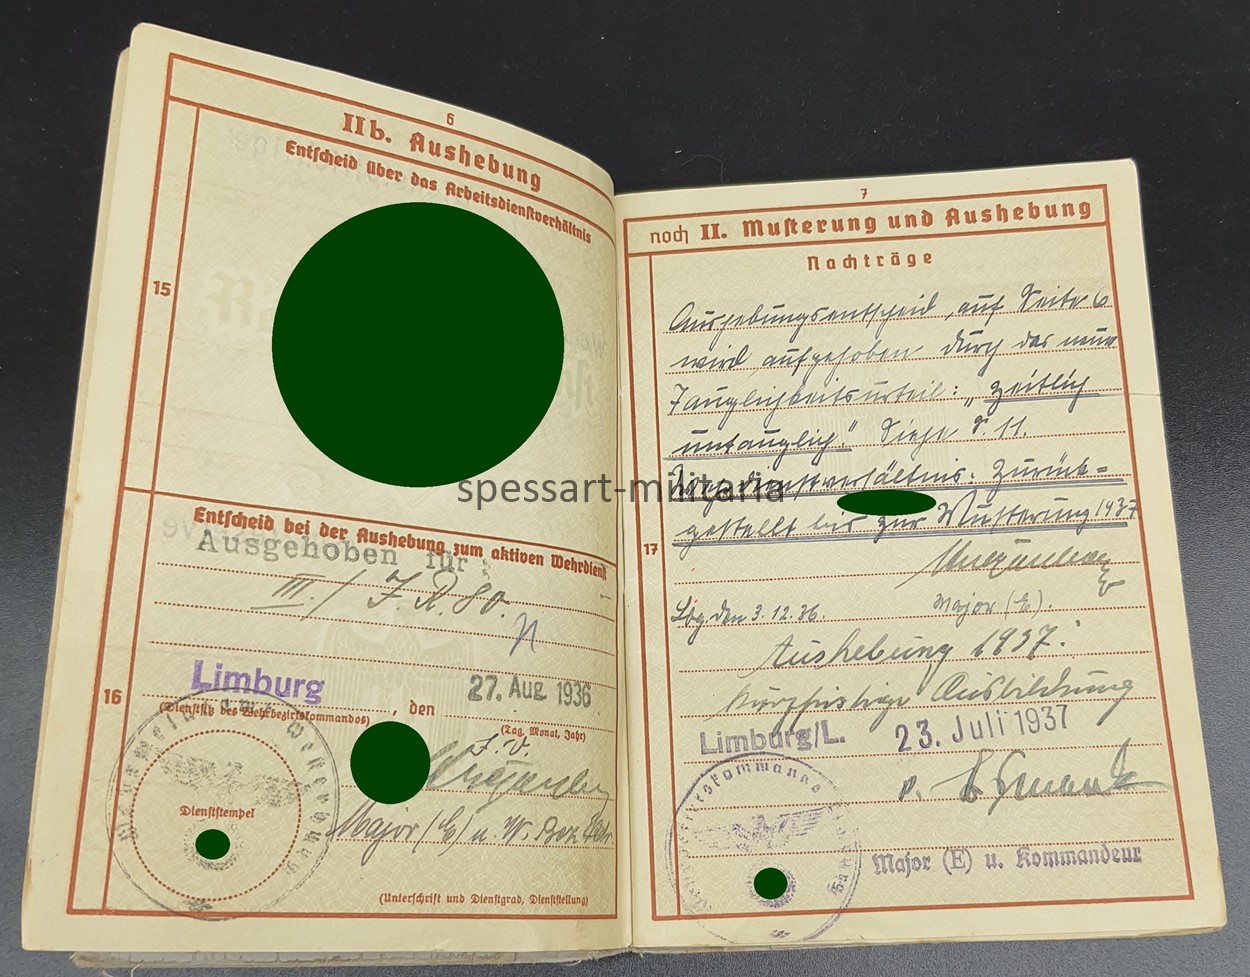 6
IIb. Aushebung
Entscheid über das Arbeitsdienstverhältnis
15
Entscheid bei der Aushebung zum aktiven Wehrdienst
Ausgehoben für:
III. / J. R. 80.
16
Limburg, den 27. Aug 1936
(Dienstsitz des Wehrbezirkskommandos)
(Tag, Monat, Jahr)
J. V.
Dienststempel
Major (E) u.
(Unterschrift und Dienstgrad, Dienststellung)
7
noch II. Musterung und Aushebung
Nachträge
Aushebungsentscheid auf Seite 6
wird aufgehoben durch das neue
Tauglichkeitsurteil: „zeitlich
untauglich." Siehe S. 11.
Wehrdienstverhältnis: Zurück=
gestellt bis zur Musterung 1937
17
Lbg. den 3.12.36. Major (E).
Aushebung 1937:
kurzfristige Ausbildung
Limburg/L. 23. Juli 1937
Major (E) u. Kommandeur
spessart-militaria